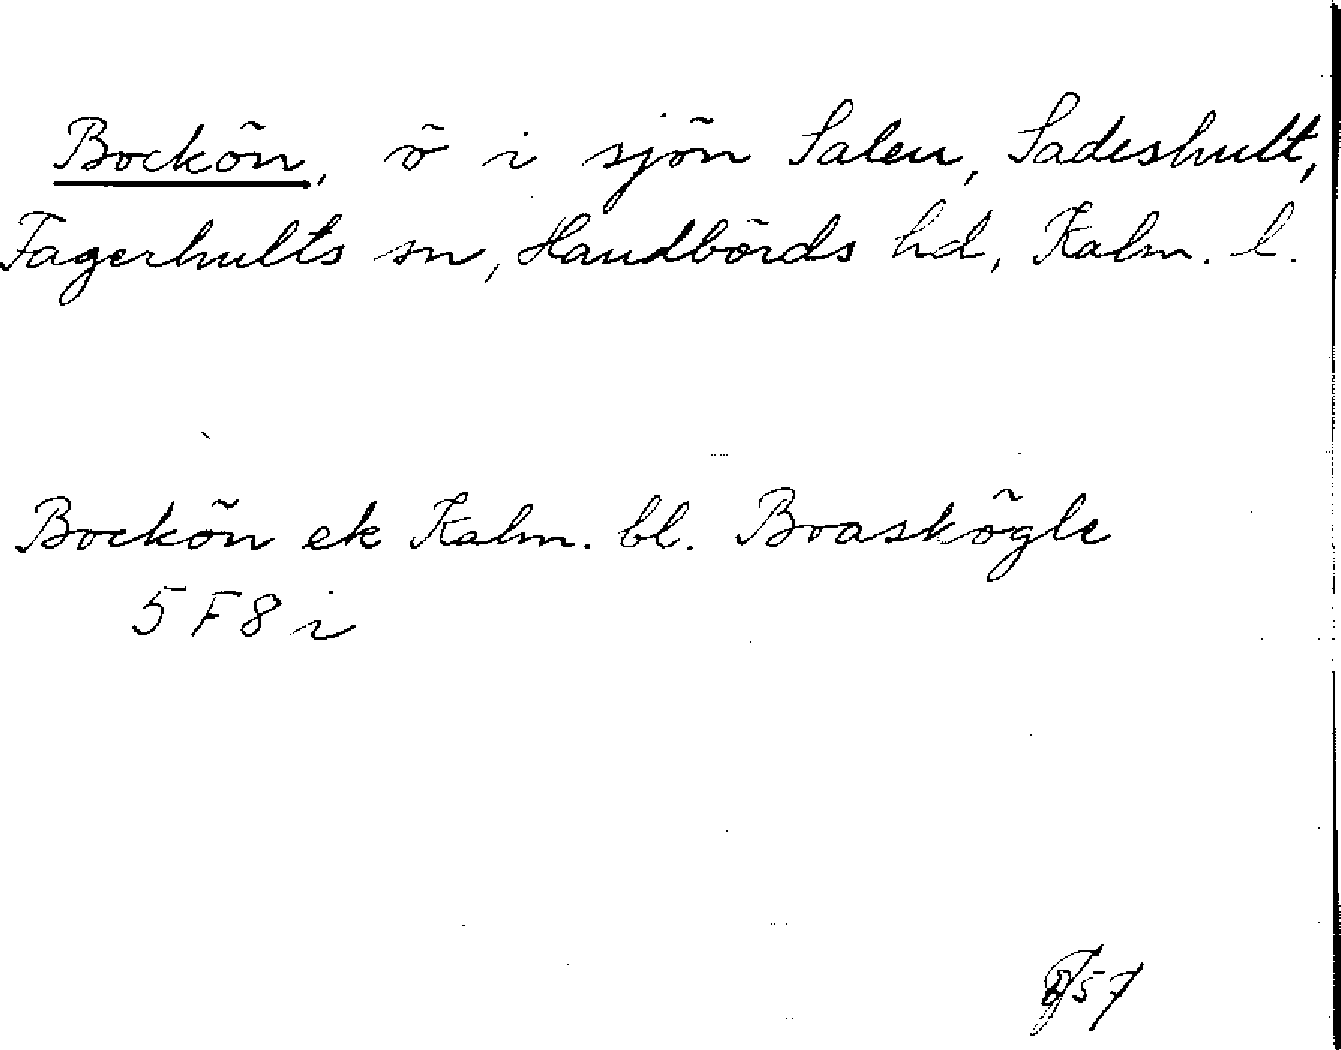 Bockön, ö i sjön Salen, Sadeshult,
Fagerhults sn, Handbörds hd, Kalm. l.
Bockön ek Kalm. bl. Boaskögle
5 F 8 i
57